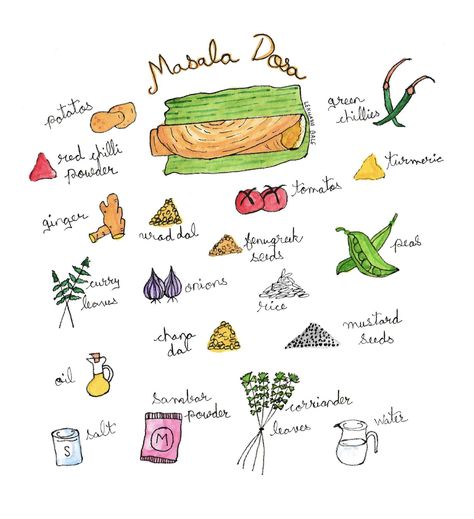 Masala Dosa
potatos
green
chillies
LEKSHANA BALE
red chilli
powder
turmeric
tomatos
ginger
urad dal
fenugreek
seeds
peas
curry
leaves
onions
rice
chana
dal
mustard
seeds
oil
sambar
powder
corriander
leaves
salt
S
M
water